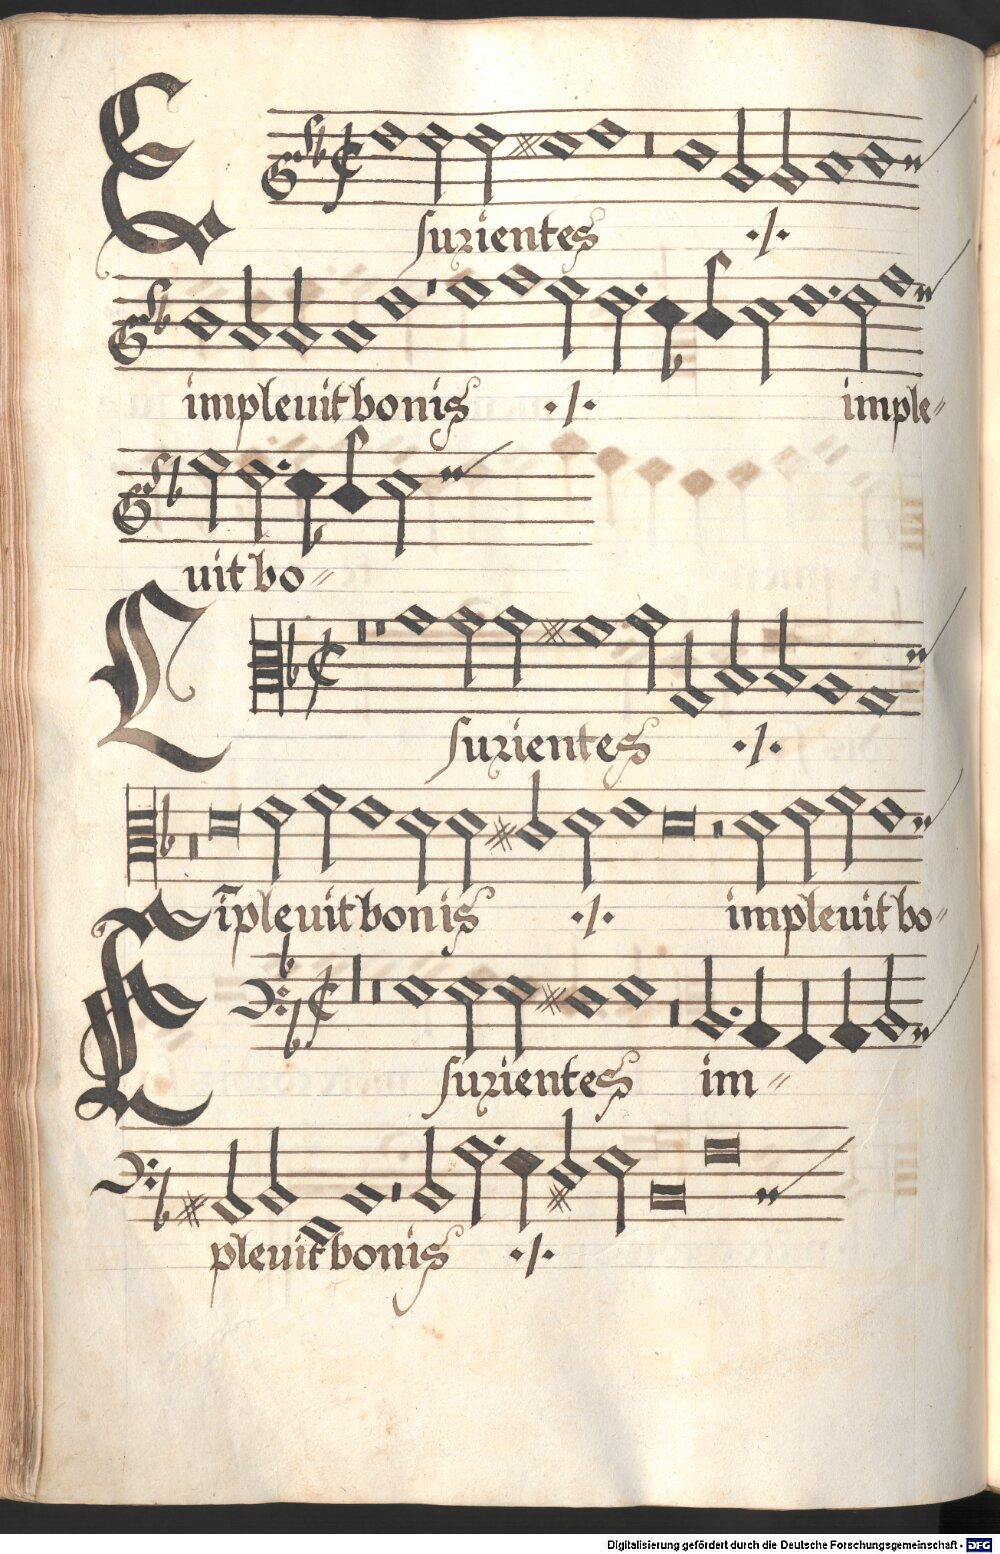 Esurientes ·/·
impleuit bonis ·/· imple〃
uit bo〃
Esurientes ·/·
īpleuit bonis ·/· impleuit bo〃
Esurientes im〃
pleuit bonis ·/·
Digitalisierung gefördert durch die Deutsche Forschungsgemeinschaft - DFG